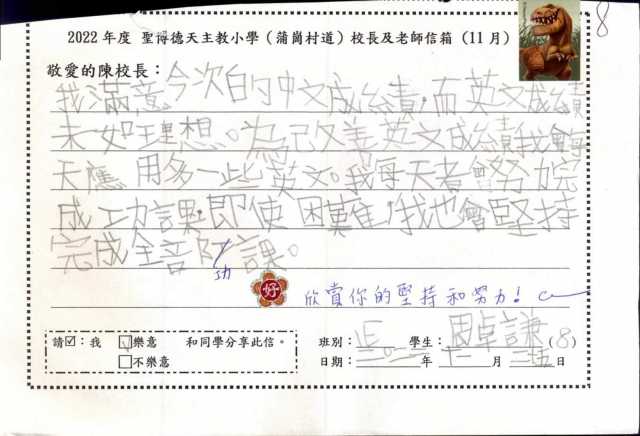 8
2022 年度 聖博德天主教小學（蒲崗村道）校長及老師信箱 (11 月)
敬愛的陳校長：
我滿意今次的中文成績，而英文成績
未如理想。為改善英文成績我會每
天應用多一些英文。我每天都會努力完
成功課，即使困難，我也會堅持
完成全部功課。
功
好
欣賞你的堅持和努力！
請☑：我 ☑樂意 和同學分享此信。
□不樂意
班別： 1E 學生： 卓謙 (8)
日期： 二〇二二 年 十一 月 二五 日